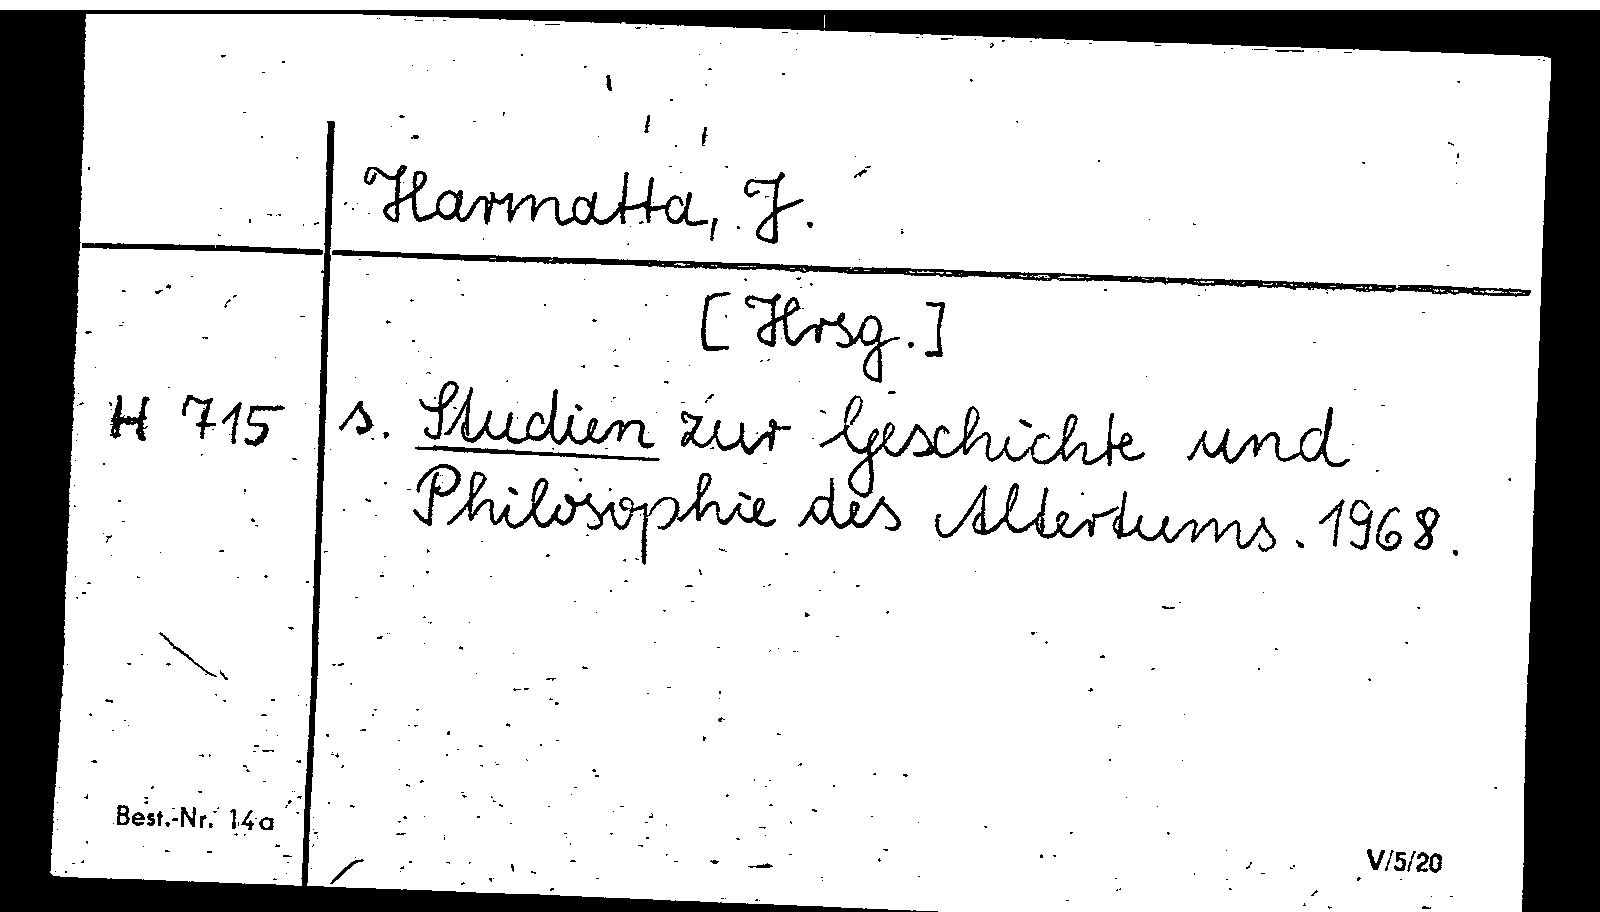 Harmatta, J.
[Hrsg.]
H 715 s. Studien zur Geschichte und
Philosophie des Altertums. 1968.
Best.-Nr. 14a
V/5/20